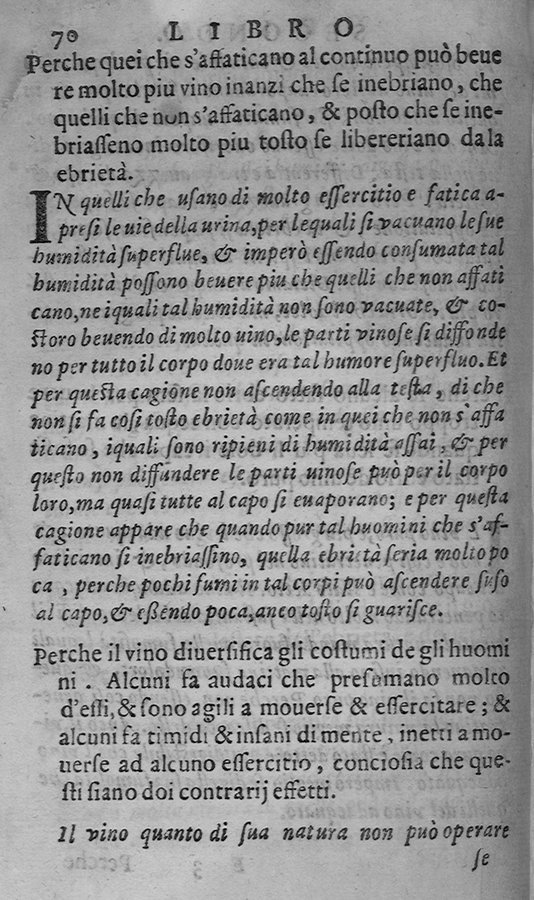 70 LIBRO
Perche quei che s'affaticano al continuo può beue
re molto piu vino inanzi che se inebriano, che
quelli che non s'affaticano, & posto che se ine-
briasseno molto piu tosto se libereriano da la
ebrietà.
IN quelli che usano di molto essercitio e fatica a-
presi le uie della urina, per lequali si vacuano le sue
humidità superflue, & imperò essendo consumata tal
humidità possono beuere piu che quelli che non affati
cano, ne iquali tal humidità non sono vacuate, & co-
storo beuendo di molto uino, le parti vinose si diffonde
no per tutto il corpo doue era tal humore superfluo. Et
per questa cagione non ascendendo alla testa, di che
non si fa cosi tosto ebrietà come in quei che non s'affa
ticano, iquali sono ripieni di humidità assai, & per
questo non diffundere le parti uinose può per il corpo
loro, ma quasi tutte al capo si euaporano; e per questa
cagione appare che quando pur tal huomini che s'af-
faticano si inebriassino, quella ebrietà seria molto po
ca, perche pochi fumi in tal corpi può ascendere suso
al capo, & essendo poca, anco tosto si guarisce.
Perche il vino diuersifica gli costumi de gli huomi
ni. Alcuni fa audaci che presumano molto
d'essi, & sono agili a mouerse & essercitare; &
alcuni fa timidi & insani di mente, inetti a mo-
uerse ad alcuno essercitio, conciosia che que-
sti siano doi contrarij effetti.
Il vino quanto di sua natura non può operare
se